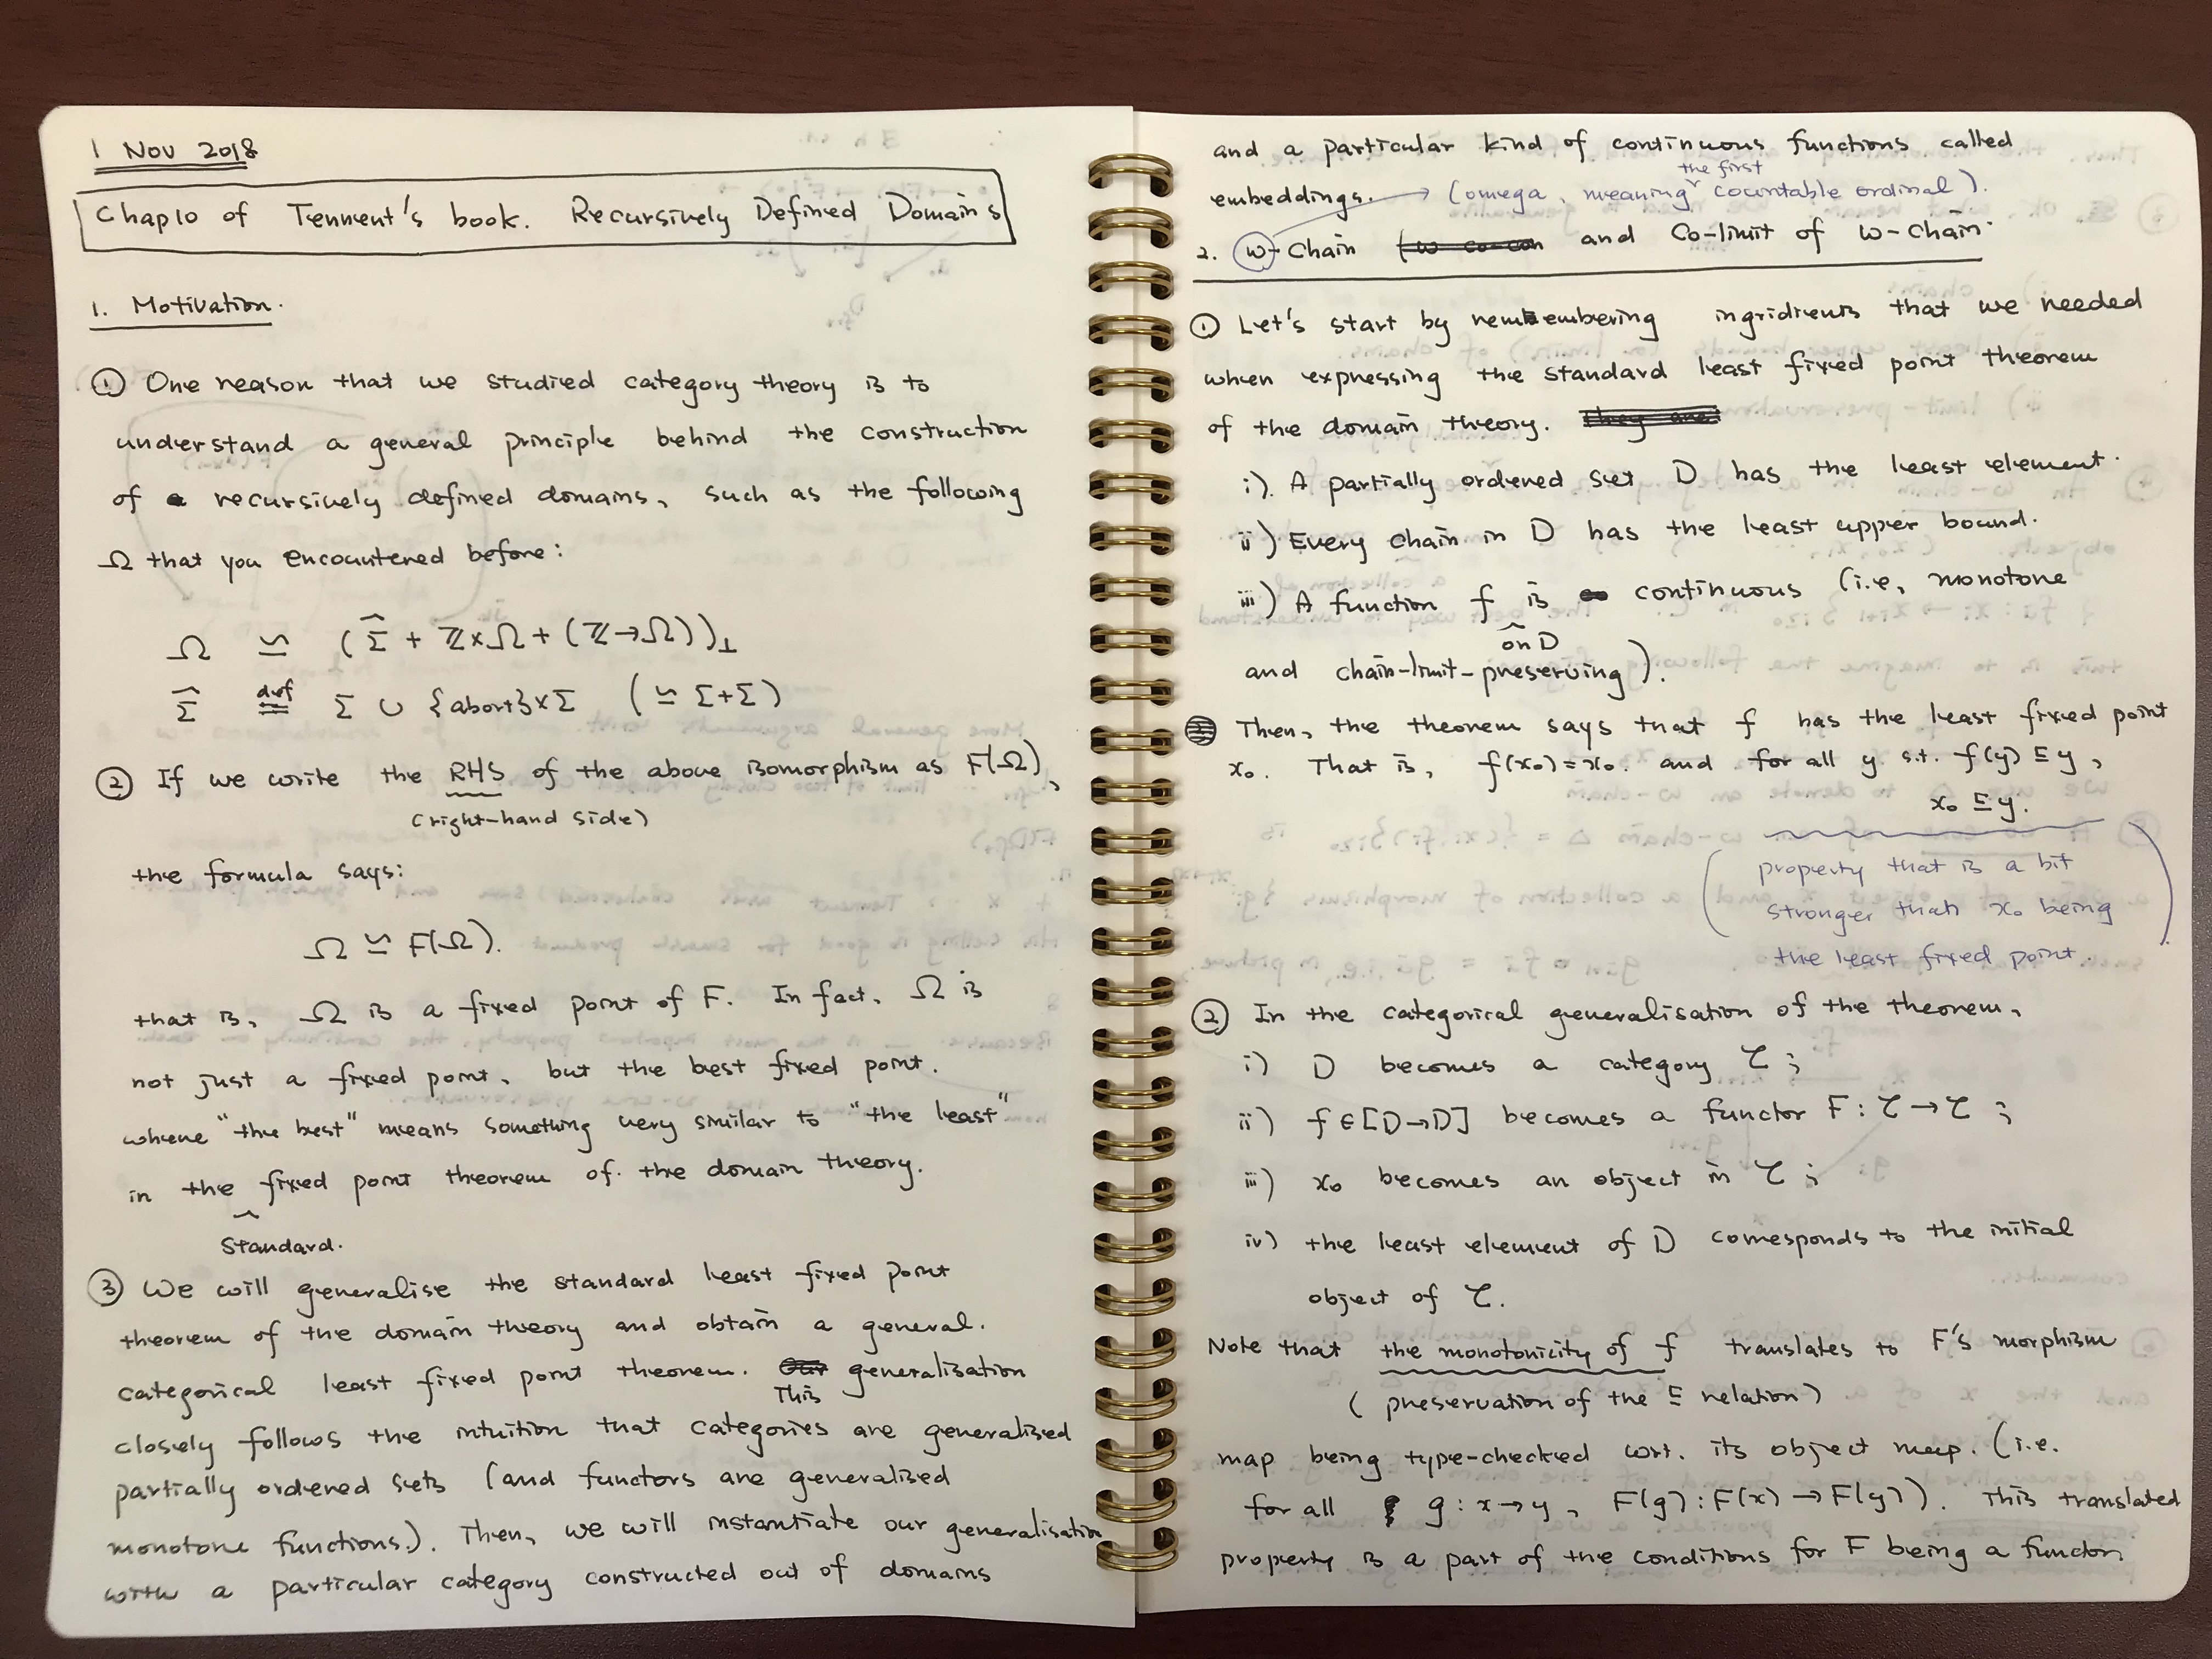 1 Nov 2018
Chap10 of Tennent's book. Recursively Defined Domains
1. Motivation.
① One reason that we studied category theory is to
understand a general principle behind the construction
of recursively defined domains, such as the following
Ω that you encountered before:
Ω ≃ (Σ̂ + ℤ×Ω + (ℤ→Ω))⊥
Σ̂ ≝ Σ ∪ {abort}×Σ (≃ Σ+Σ)
② If we write the RHS of the above isomorphism as F(Ω),
(right-hand side)
the formula says:
Ω ≃ F(Ω).
that is, Ω is a fixed point of F. In fact, Ω is
not just a fixed point, but the best fixed point.
where "the best" means something very similar to "the least"
in the fixed point theorem of the domain theory.
^
standard.
③ We will generalise the standard least fixed point
theorem of the domain theory and obtain a general.
categorical least fixed point theorem. generalisation
This
closely follows the intuition that categories are generalised
partially ordered sets (and functors are generalised
monotone functions.). Then, we will instantiate our generalisation
with a particular category constructed out of domains
and a particular kind of continuous functions called
the first
embeddings. → (omega, meaning countable ordinal).
2. ω-Chain and Co-limit of ω-Chain.
① Let's start by remembering ingridients that we needed
when expressing the standard least fixed point theorem
of the domain theory. They are
i). A partially ordered set D has the least element.
ii) Every chain in D has the least upper bound.
iii) A function f is continuous (i.e, monotone
^
on D
and chain-limit-preserving).
Then, the theorem says that f has the least fixed point
x₀. That is, f(x₀)=x₀. and for all y s.t. f(y) ⊑ y,
x₀ ⊑ y.
(property that is a bit
stronger than x₀ being
the least fixed point.)
② In the categorical generalisation of the theorem,
i) D becomes a category 𝒞;
ii) f∈[D→D] becomes a functor F: 𝒞→𝒞;
iii) x₀ becomes an object in 𝒞;
iv) the least element of D corresponds to the initial
object of 𝒞.
Note that the monotonicity of f translates to F's morphism
(preservation of the ⊑ relation)
map being type-checked wrt. its object map. (i.e.
for all g: x→y, F(g): F(x)→F(y)). This translated
property is a part of the conditions for F being a functor.